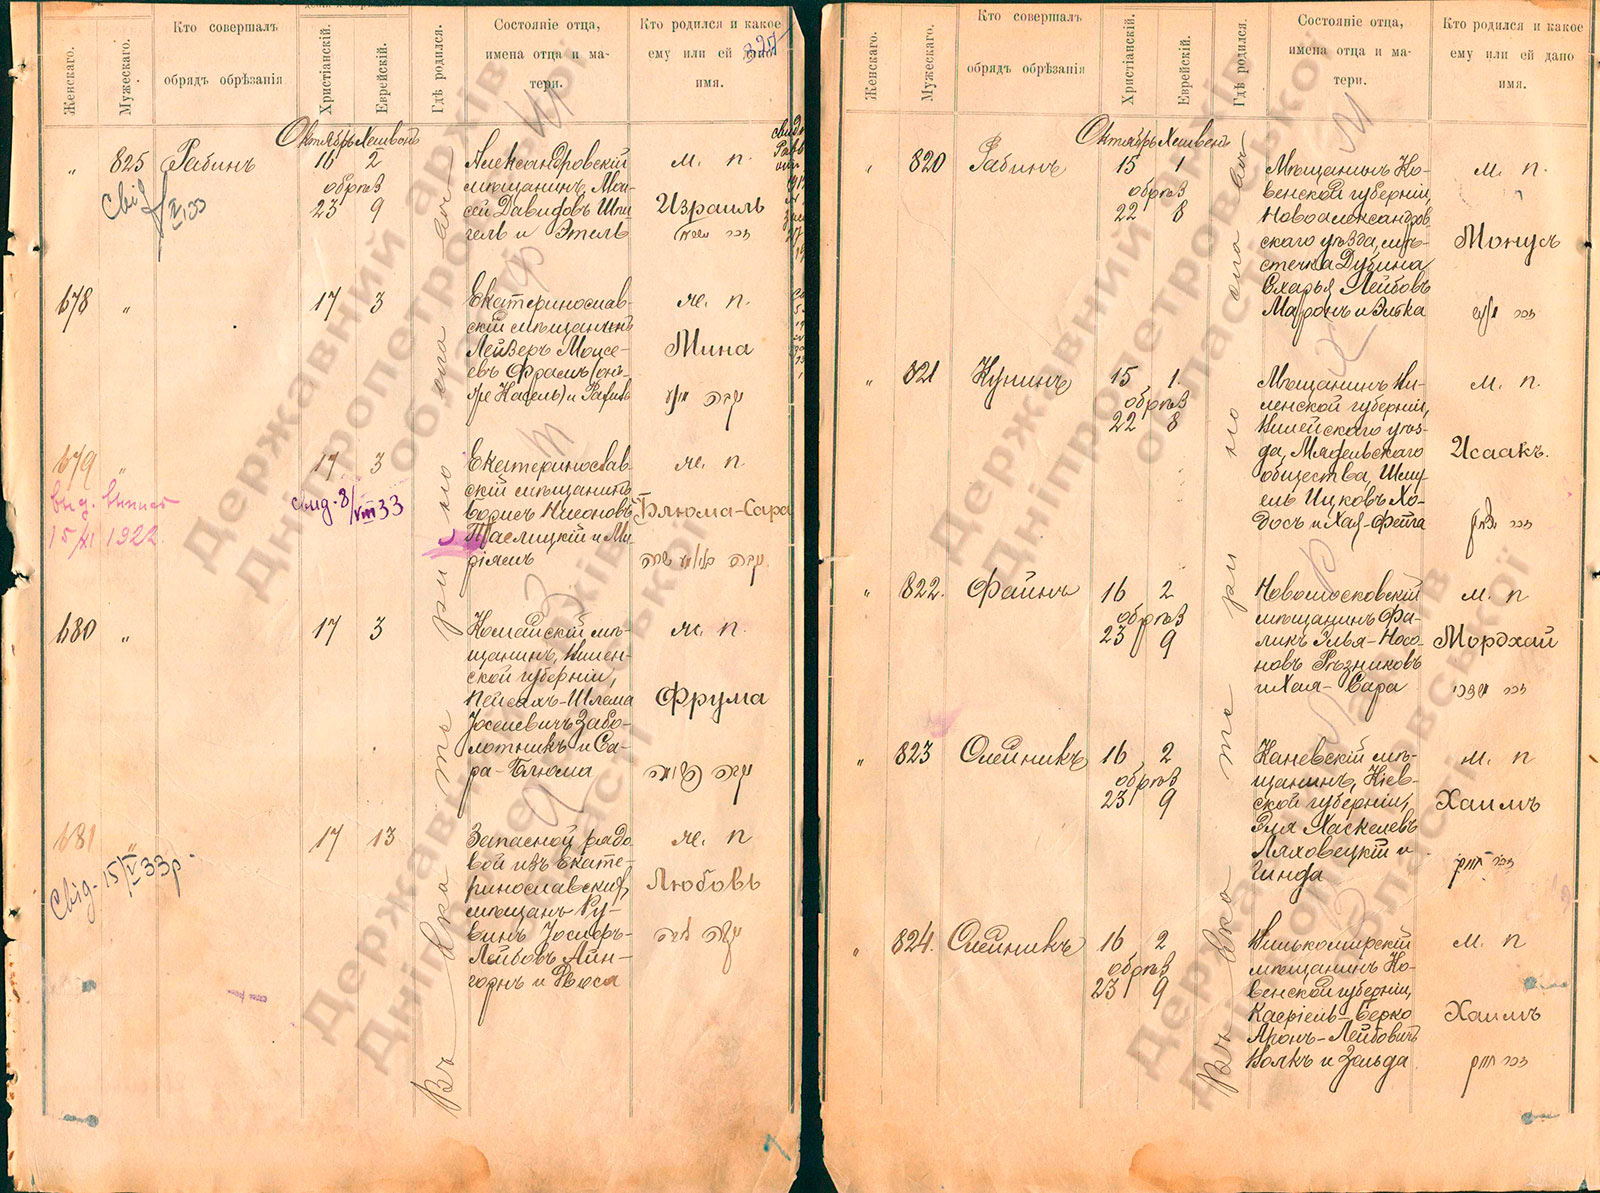 Женскаго.
Мужескаго.
Кто совершалъ
обрядъ обрѣзанія
Христіанскій.
Еврейскій.
Гдѣ родился.
Состояніе отца,
имена отца и ма-
тери.
Кто родился и какое
ему или ей дано
имя.
Октябрь Хешвонъ
" 825 Рабинъ 16 2
обрѣз
23 9
Александровскій
мѣщанинъ Мои-
сей Давидовъ Шпи-
гель и Этель
м. п.
Израиль
זכר ישראל
678 " 17 3
Екатеринослав-
скій мѣщанинъ
Лейзеръ Моисе-
евъ
м. п.
Мина
נקבה
679 " 17 3
15/XI 1922
свид. 8/VIII 33
Екатеринослав-
скій мѣщанинъ
Борисъ
и Ми-
ріямъ
м. п
Блюма-Сара
נקבה בלומע שרה
680 " 17 3
мѣ-
щанинъ, Вилен-
ской губерніи,
Пейсахъ-Шлема
Іоселевичъ Забо-
лотникъ и Са-
ра-Блюма
м. п.
Фрума
נקבה פרומה
681 " 17 13
Свід. 15/V 33 р.
Запасной рядо
вой изъ Екате-
ринославскихъ
мѣщанъ Ру-
винъ Іосифъ-
Лейбовъ Айн-
горнъ и
м. п
Любовь
נקבה ליבה
Въ Екатеринославѣ
Женскаго.
Мужескаго.
Кто совершалъ
обрядъ обрѣзанія
Христіанскій.
Еврейскій.
Гдѣ родился.
Состояніе отца,
имена отца и ма-
тери.
Кто родился и какое
ему или ей дано
имя.
Октябрь Хешвонъ
" 820 Рабинъ 15 1
обрѣз
22 8
Мѣщанинъ Ко-
венской губерніи,
Новоалександров
скаго уѣзда, мѣ-
стечка Дубина
Схарья Лейбовъ
и Элька
м. п.
Монусъ
זכר
" 821 Кунинъ 15 1.
обрѣз
22 8
Мѣщанинъ Ви-
ленской губерніи,
Вилейскаго уѣз-
да, Мядельскаго
общества, Шму-
ель Ицковъ Хо-
досъ и Хая-Фейга
м. п.
Исаакъ.
זכר יצחק
" 822. Файнъ 16 2
обрѣз
23 9
Новомосковскій
мѣщанинъ Фа-
ликъ Элья-Носо-
новъ Рѣзниковъ
и Хая-Сара
м. п
Мордхай
זכר מרדכי
" 823 Олейникъ 16 2
обрѣз
23 9
Каневскій мѣ-
щанинъ, Кіев-
ской губерніи,
Эля Хаскелевъ
Ляховецкій и
Гинда
м. п
Хаимъ
זכר חיים
" 824. Олейникъ 16 2
обрѣз
23 9
Вилькомирскій
мѣщанинъ Ко-
венской губерніи,
Касріель-Берко
Аронъ-Лейбовичъ
Волкъ и Зельда
м. п
Хаимъ
זכר חיים
Въ Екатеринославѣ
Державний архів
Дніпропетровської
області